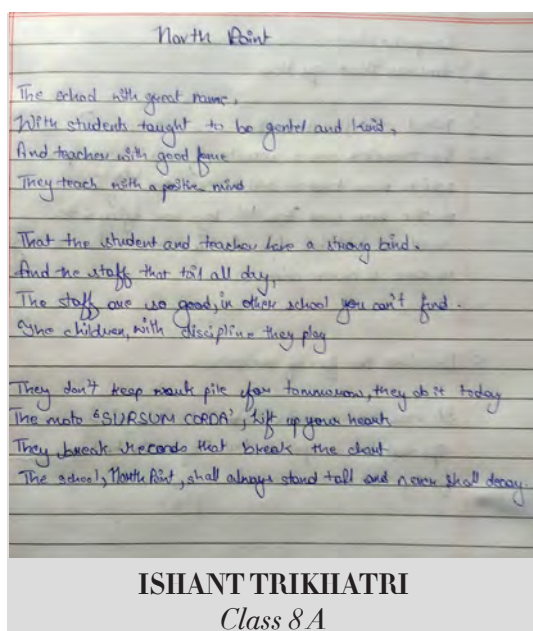 North Point
The school with great name,
With students taught to be gentel and kind,
And teacher with good fame
They teach with a positive mind
That the student and teacher have a strong bind.
And the staff that toil all day,
The staff are so good, in other school you can't find.
The children, with discipline they play
They don't keep work pile for tommorow, they do it today
The moto "SURSUM CORDA", lift up your heart
They break records that break the chart
The school, North Point, shall always stand tall and never shall decay.
ISHANT TRIKHATRI
Class 8 A